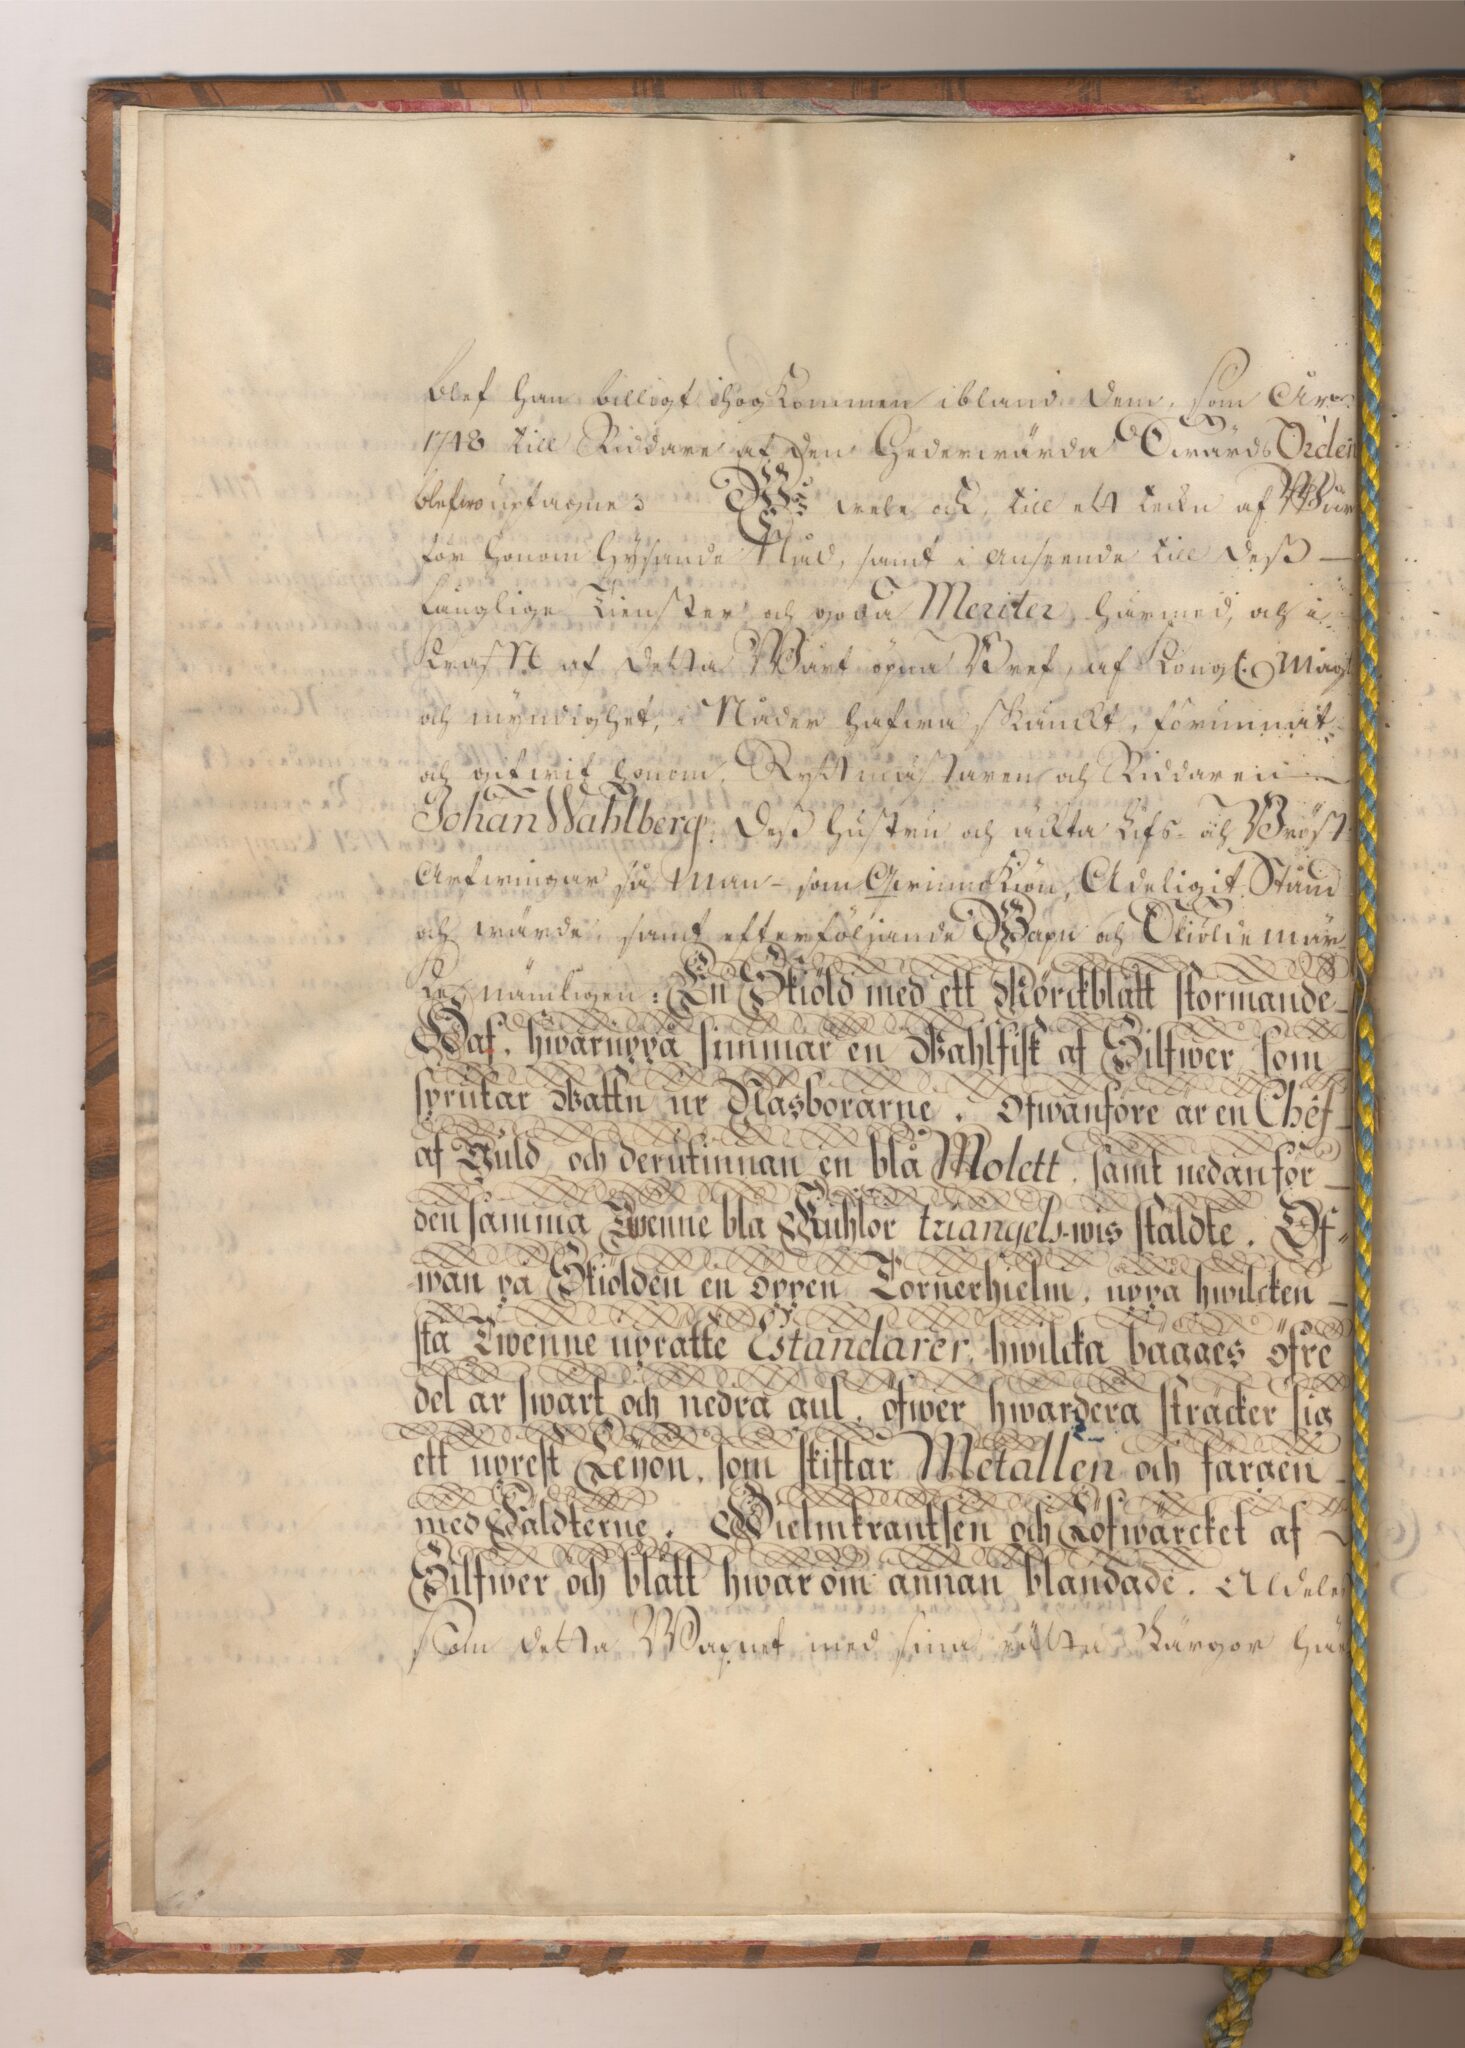 blef han billigt ihogkommen ibland dem, som Åhr
1748 till Riddare af den Hedervärda Swärds Orden
blefwo uptagne; Wi wele ock, till ett tekn af Wår
för honom hysande Nåd, samt i anseende till deß
långlige Tienster och goda Meriter, härmed, och i
Krafft af detta Wårt öpna Bref, af Kongl. Magt
och myndighet, i Nåder hafwa skänckt, förunnat
och gifwit honom, Ryttmästaren och Riddaren
Johan Wahlberg, deß hustru och äckta Lifs- och Bröst-
Arfwingar så Man- som Qwinnokiön, Adeligit Stånd
och wärde, samt efterföljande Wapn och Skiöldemär-
ke, nämligen: En Skiöld med ett Mörckblått stormande
Haf, hwaruppå simmar en Wahlfisk af Silfwer, som
sprutar Wattn ur Näsborarne. Ofwanföre är en Chef
af Guld, och derutinnan en blå Molett, samt nedanför
den samma Twenne blå Kuhlor triangels-wis stäldte. Of-
wan på Skiölden en öppen Tornerhielm, uppå hwilcken
stå Twenne uprätte Estandarer, hwilcka bägges öfre
del är swart och nedra gul, öfwer hwardera sträcker sig
ett uprest Leyon, som skiftar Metallen och färgen
med Fäldterne. Hielmkrantsen och Löfwärcket af
Silfwer och blått hwar om annan blandade. Aldeles
som detta Wapnet med sina rätta Färgor här